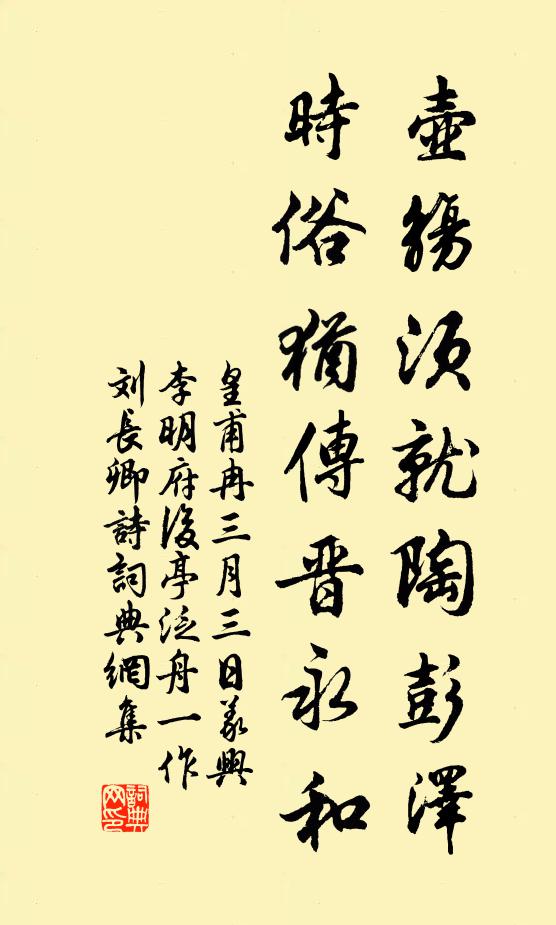 壺觴須就陶彭澤
時俗猶傳晉永和
皇甫冉三月三日義興
李明府後亭泛舟一作
劉長卿詩詞典網集
詞典网印